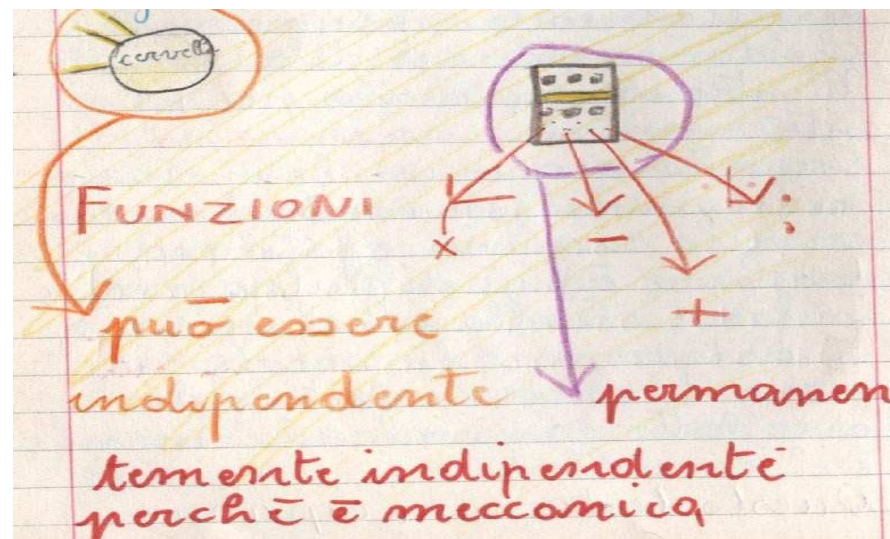 cervello
FUNZIONI
x
−
:
+
può essere
indipendente
permanen
temente indipendente
perchē ē meccanica